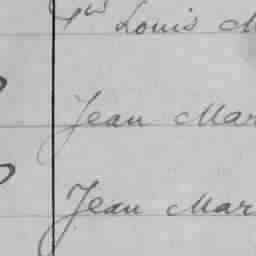 Louis M
Jean Mar
Jean Mar